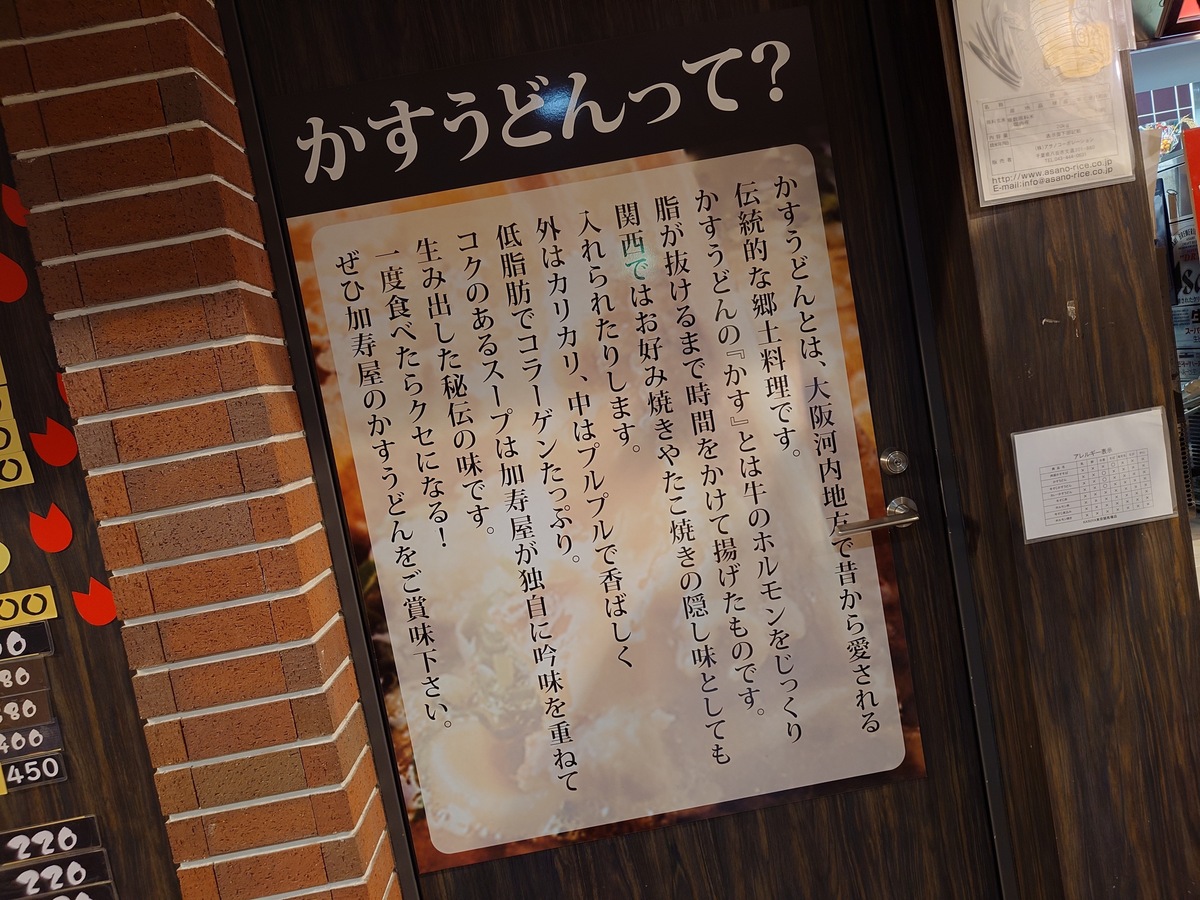 かすうどんって?
かすうどんとは、大阪河内地方で昔から愛される
伝統的な郷土料理です。
かすうどんの『かす』とは牛のホルモンをじっくり
脂が抜けるまで時間をかけて揚げたものです。
関西ではお好み焼きやたこ焼きの隠し味としても
入れられたりします。
外はカリカリ、中はプルプルで香ばしく
低脂肪でコラーゲンたっぷり。
コクのあるスープは加寿屋が独自に吟味を重ねて
生み出した秘伝の味です。
一度食べたらクセになる!
ぜひ加寿屋のかすうどんをご賞味下さい。
http://www.asano-rice.co.jp
E-mail:info@asano-rice.co.jp
アレルギー表示
400
450
220
220